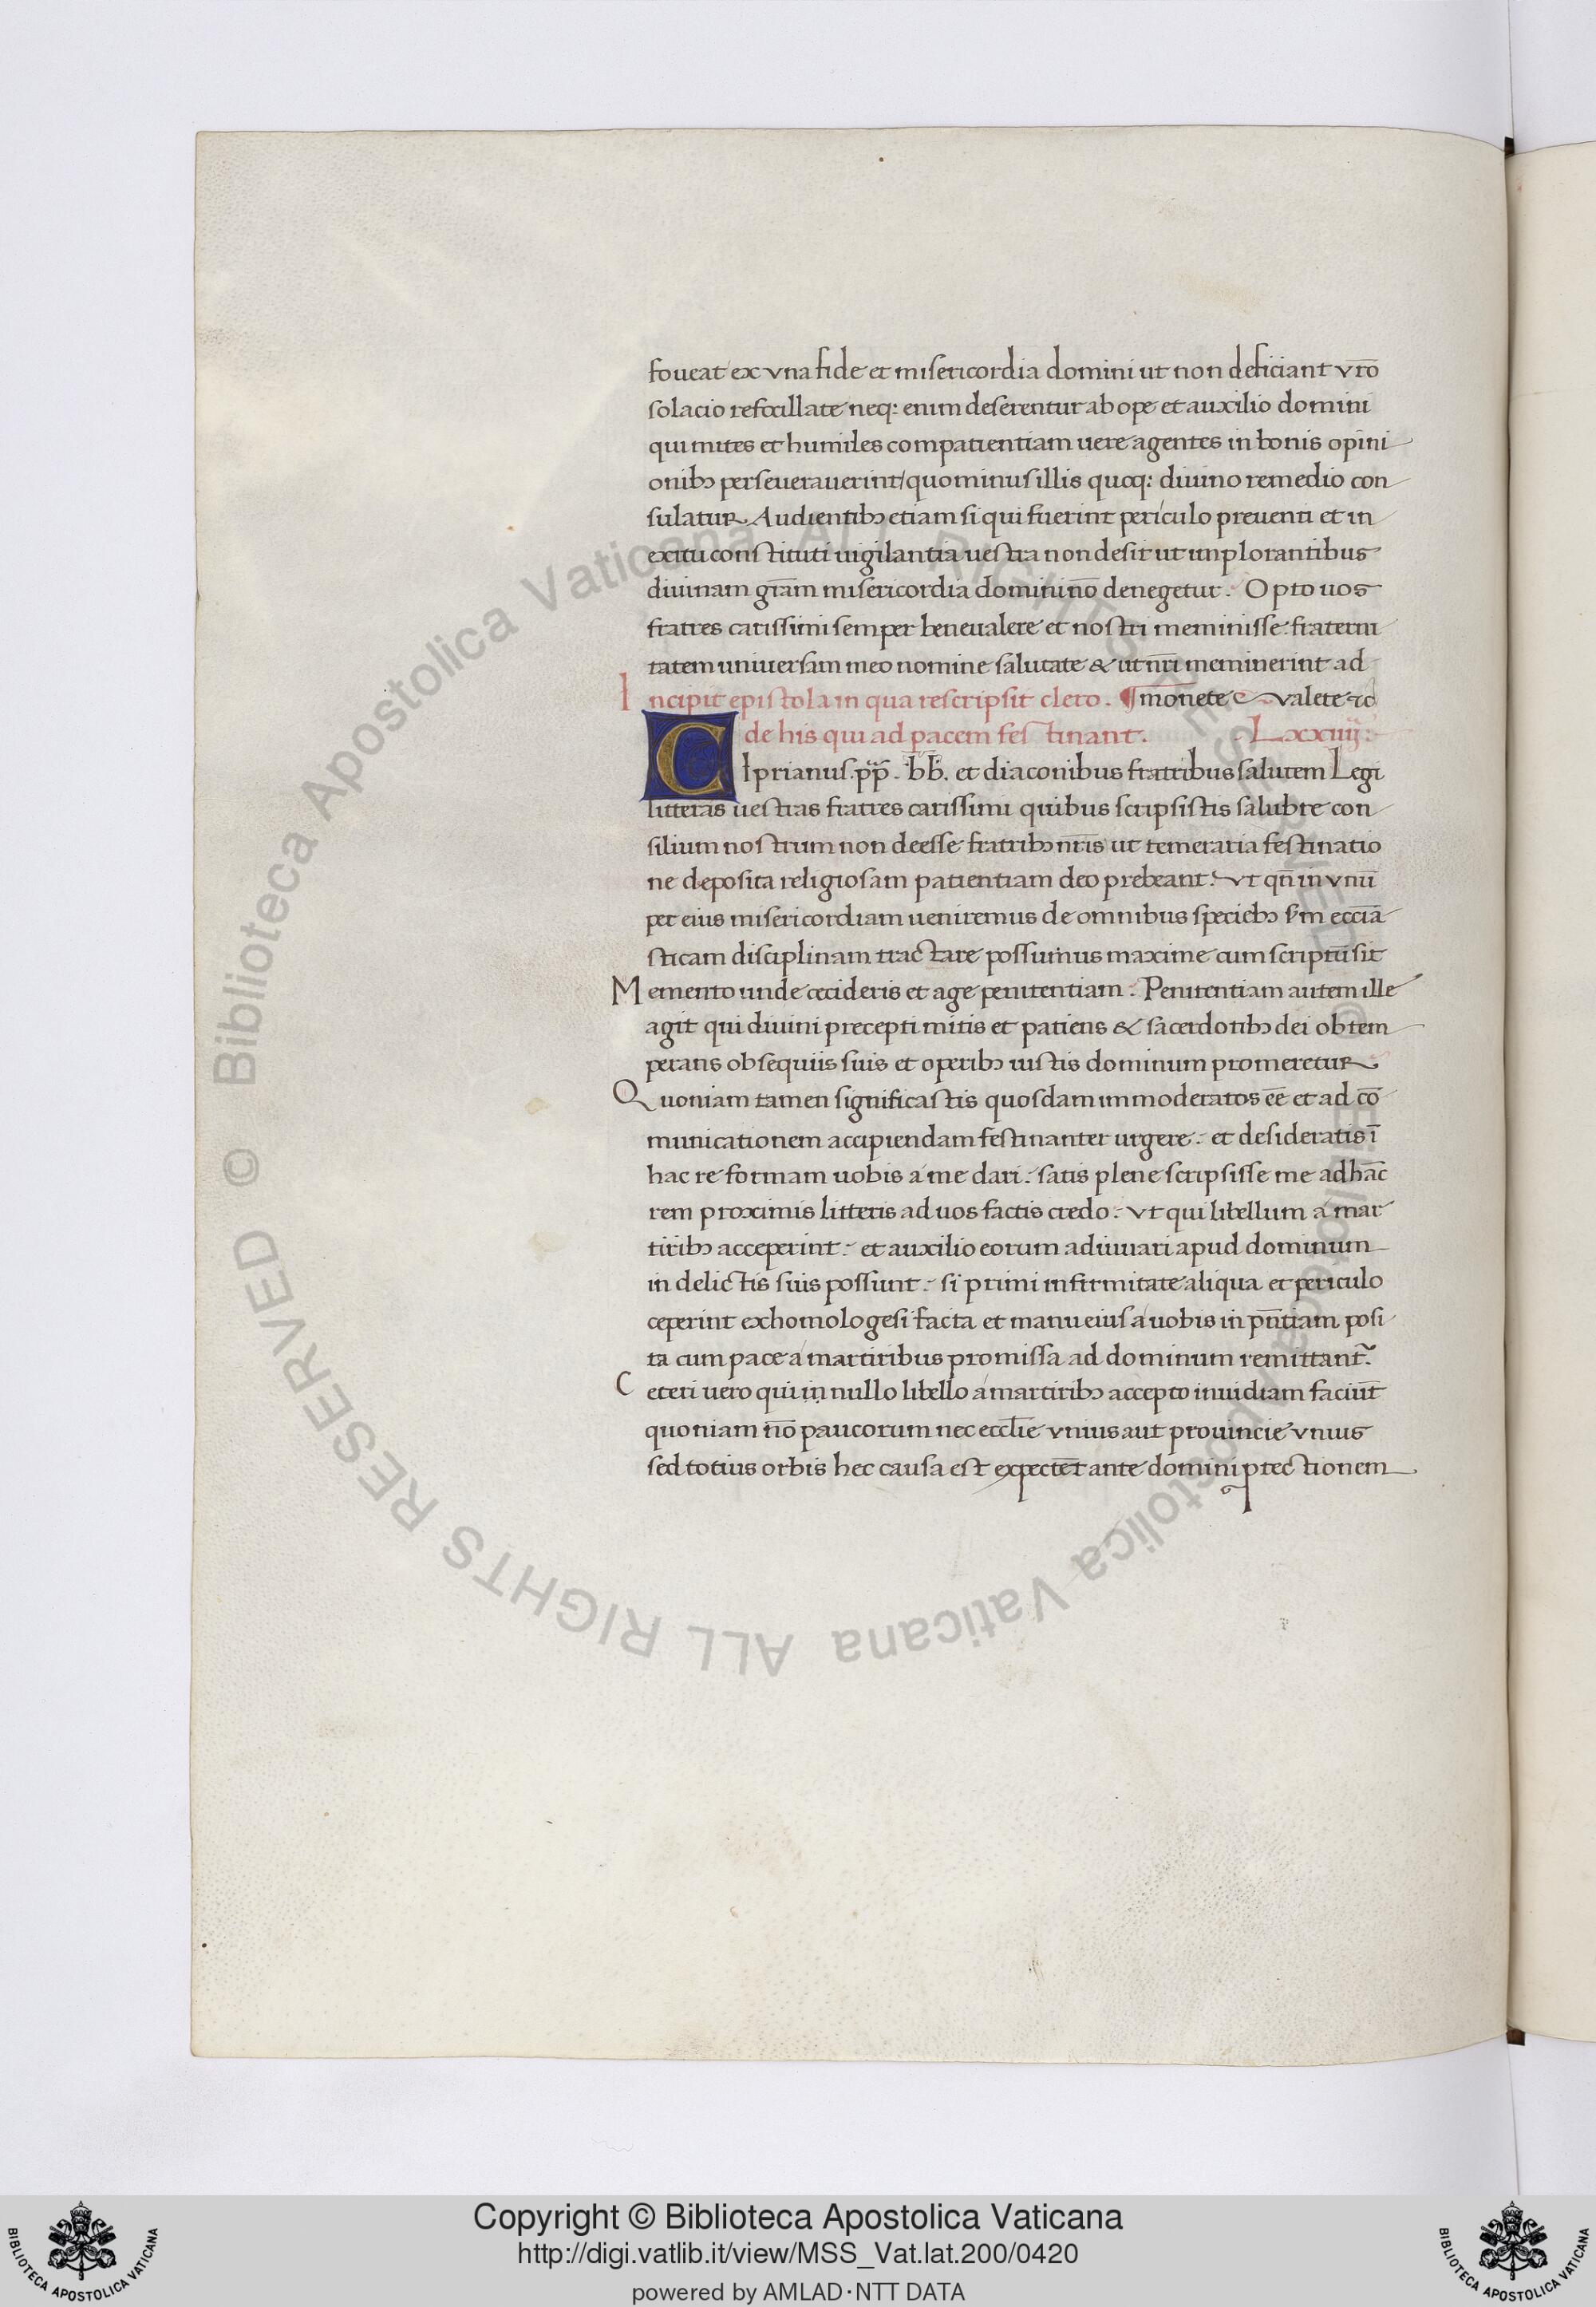 foueat ex vna fide et misericordia domini ut non deficiant vr̄o
solacio refocillate neq: enim deserentur ab ope et auxilio domini
qui mites et humiles compatientiam uere agentes in bonis opini
onibɔ perseuerauerint/quominus illis quoq: diuino remedio con
sulatur Audientibɔ etiam si qui fuerint periculo preuenti et in
exitu constituti uigilantia uestra non desit ut implorantibus
diuinam gr̄am misericordia domini nō denegetur. Opto uos
fratres carissimi semper bene ualere et nostri meminisse: fraterni
tatem uniuersam meo nomine salutate & ut nr̄i meminerint ad
Incipit epistola in qua rescripsit clero. ¶ monete & valete
de his qui ad pacem festinant. Lxxiiij:
CIprianus. pp̄. b̄b̄. et diaconibus fratribus salutem Legi
litteras uestras fratres carissimi quibus scripsistis salubre con
silium nostrum non deesse fratribɔ nr̄is ut temeraria festinatio
ne deposita religiosam patientiam deo prebeant: vt qn̄ in vnū
per eius misericordiam ueniremus de omnibus speciebɔ sm̄ eccīa
sticam disciplinam tractare possumus maxime cum scriptū sit
Memento unde cecideris et age penitentiam: Penitentiam autem ille
agit qui diuini precepti mitis et patiens & sacerdotibɔ dei obtem
perans obsequiis suis et operibɔ iustis dominum promeretur
Quoniam tamen significastis quosdam immoderatos ēe et ad cō
municationem accipiendam festinanter urgere: et desideratis ī
hac re formam uobis a me dari: satis plene scripsisse me ad hāc
rem proximis litteris ad uos factis credo: vt qui libellum a mar
tiribɔ acceperint: et auxilio eorum adiuuari apud dominum
in delictis suis possunt: si primi infirmitate aliqua et periculo
ceperint exhomologesi facta et manu eius a uobis in pn̄tiam posi
ta cum pace a martiribus promissa ad dominum remittant᷑.
Ceteri uero qui in nullo libello a martiribɔ accepto inuidiam faciūt
quoniam nō paucorum nec eccl̄ie vnius aut prouincie vnius
sed totius orbis hec causa est expectēt ante domini ptectionem
© Biblioteca Apostolica Vaticana ALL RIGHTS RESERVED © Biblioteca Apostolica Vaticana ALL RIGHTS RESERVED
Copyright © Biblioteca Apostolica Vaticana
http://digi.vatlib.it/view/MSS_Vat.lat.200/0420
powered by AMLAD·NTT DATA
BIBLIOTECA APOSTOLICA VATICANA
BIBLIOTECA APOSTOLICA VATICANA